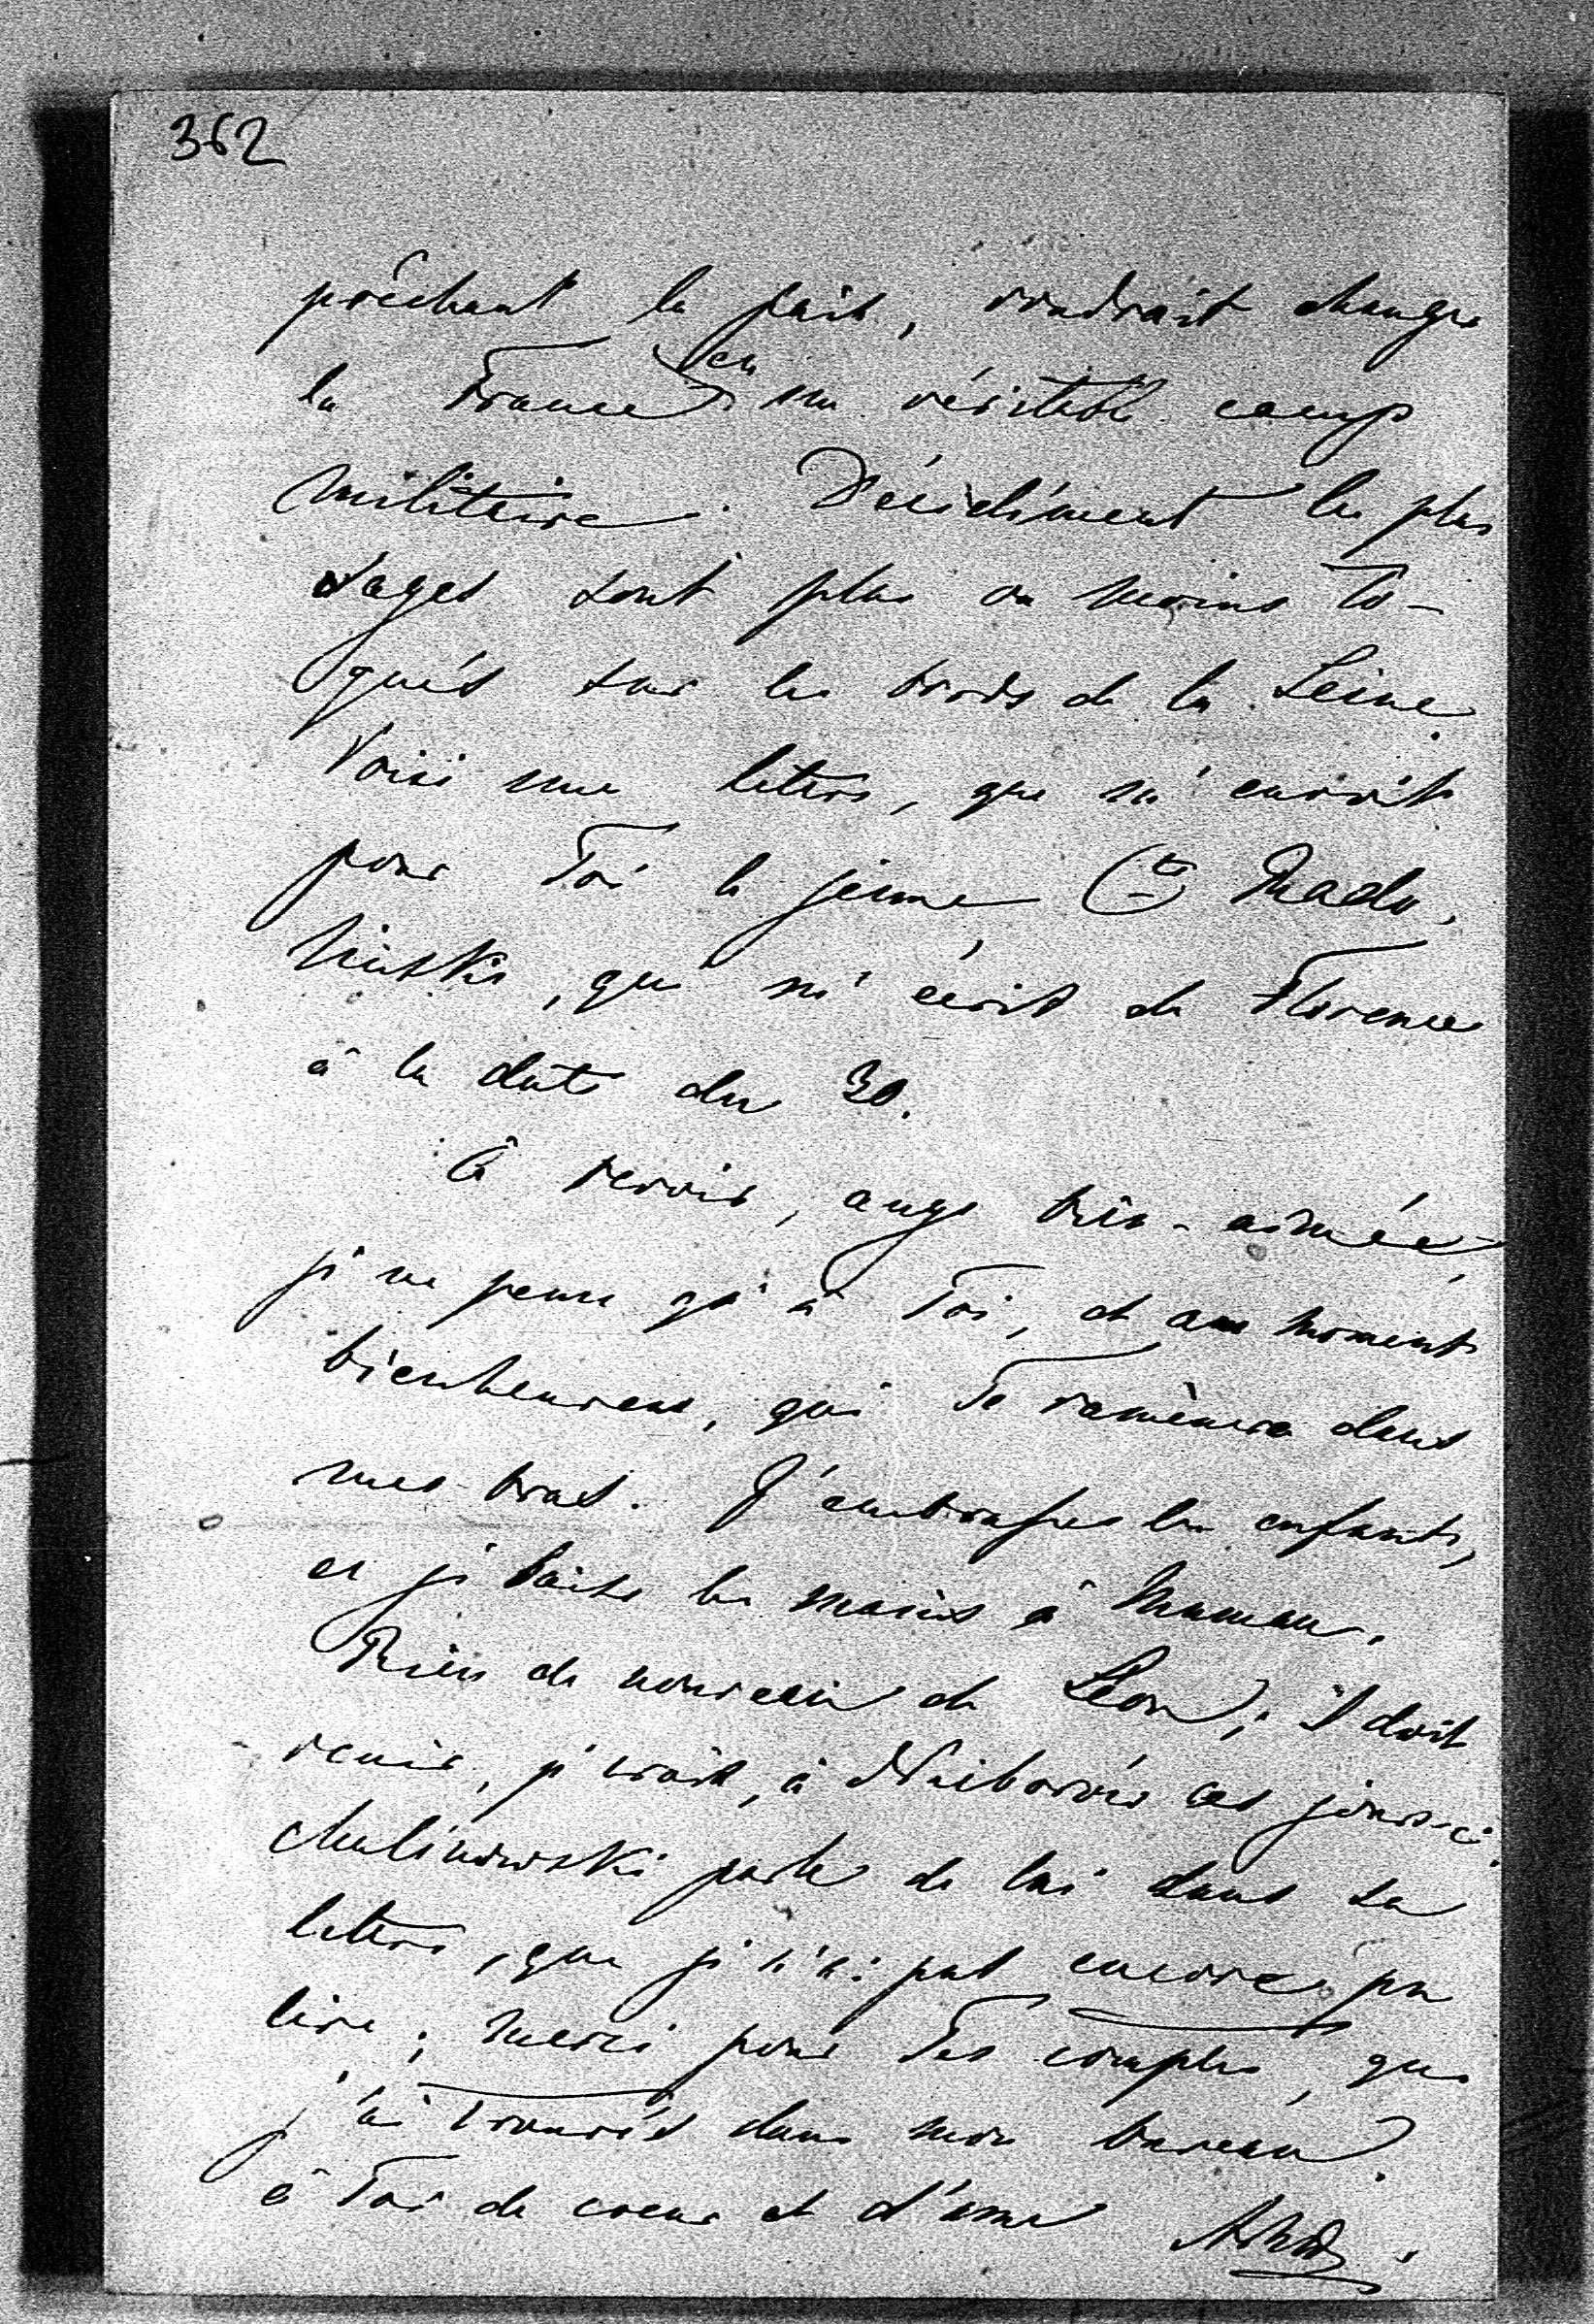 362
prêchant la paix, voudrait changer
la France en un véritable camp
militaire. Décidément les plus
sages sont plus ou moins to-
qués sur les bords de la Seine.
Voici une lettre, que m'envoit
pour Toi le jeune Cte Mado-
, qui m'écrit de Florence
à la date du 30.
à revoir, ange bien-aimée,
je ne pense qu'à Toi, et au moment
bienheureux, qui Te ramènera dans
mes bras. J'embrasse les enfants,
et je baise les mains à Maman.
Rien de nouveau de Léon; il doit
venir, je crois, à ces jours-ci.
Malinowski parle de lui dans sa
lettre, que je n'ai pas encore pu
lire; merci pour Tes comptes, que
j'ai trouvés dans mon bureau.
à Toi de coeur et d'âme